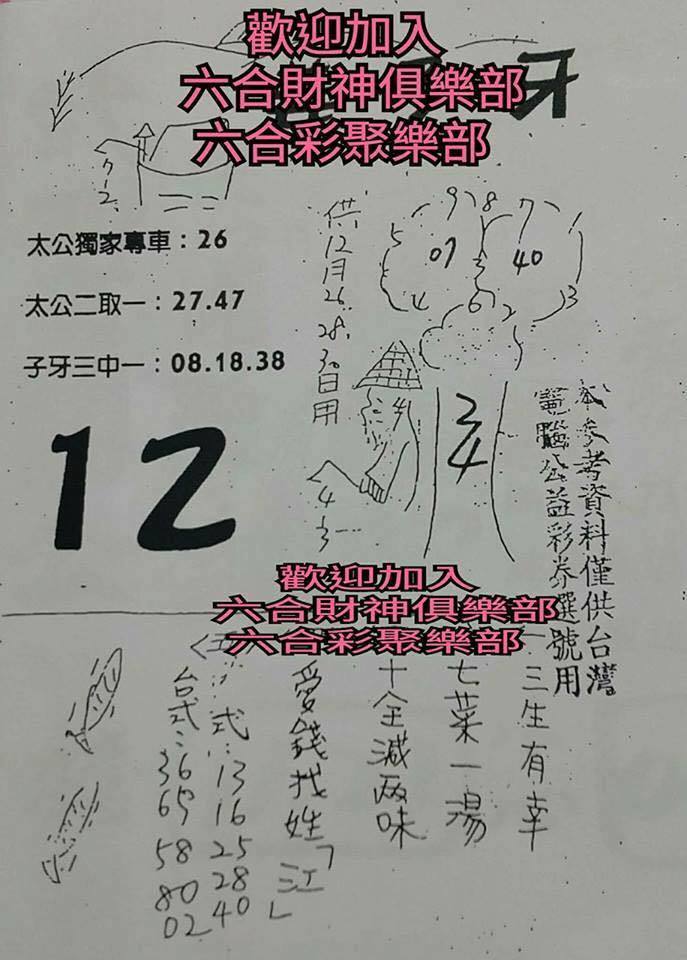 歡迎加入
六合財神俱樂部
六合彩聚樂部
牙
太公獨家專車：26
太公二取一：27.47
子牙三中一：08.18.38
12
供12月26 28.30日用
9 8 7
5 07 3 40 1
4 6 2 3
34
4
3
本參考資料僅供台灣
電腦公益彩券選號用
歡迎加入
六合財神俱樂部
六合彩聚樂部
三生有幸
七菜一湯
十全減兩味
愛錢找姓「江」
式：13 16 25 28 40
台式：36 69 58 80 02